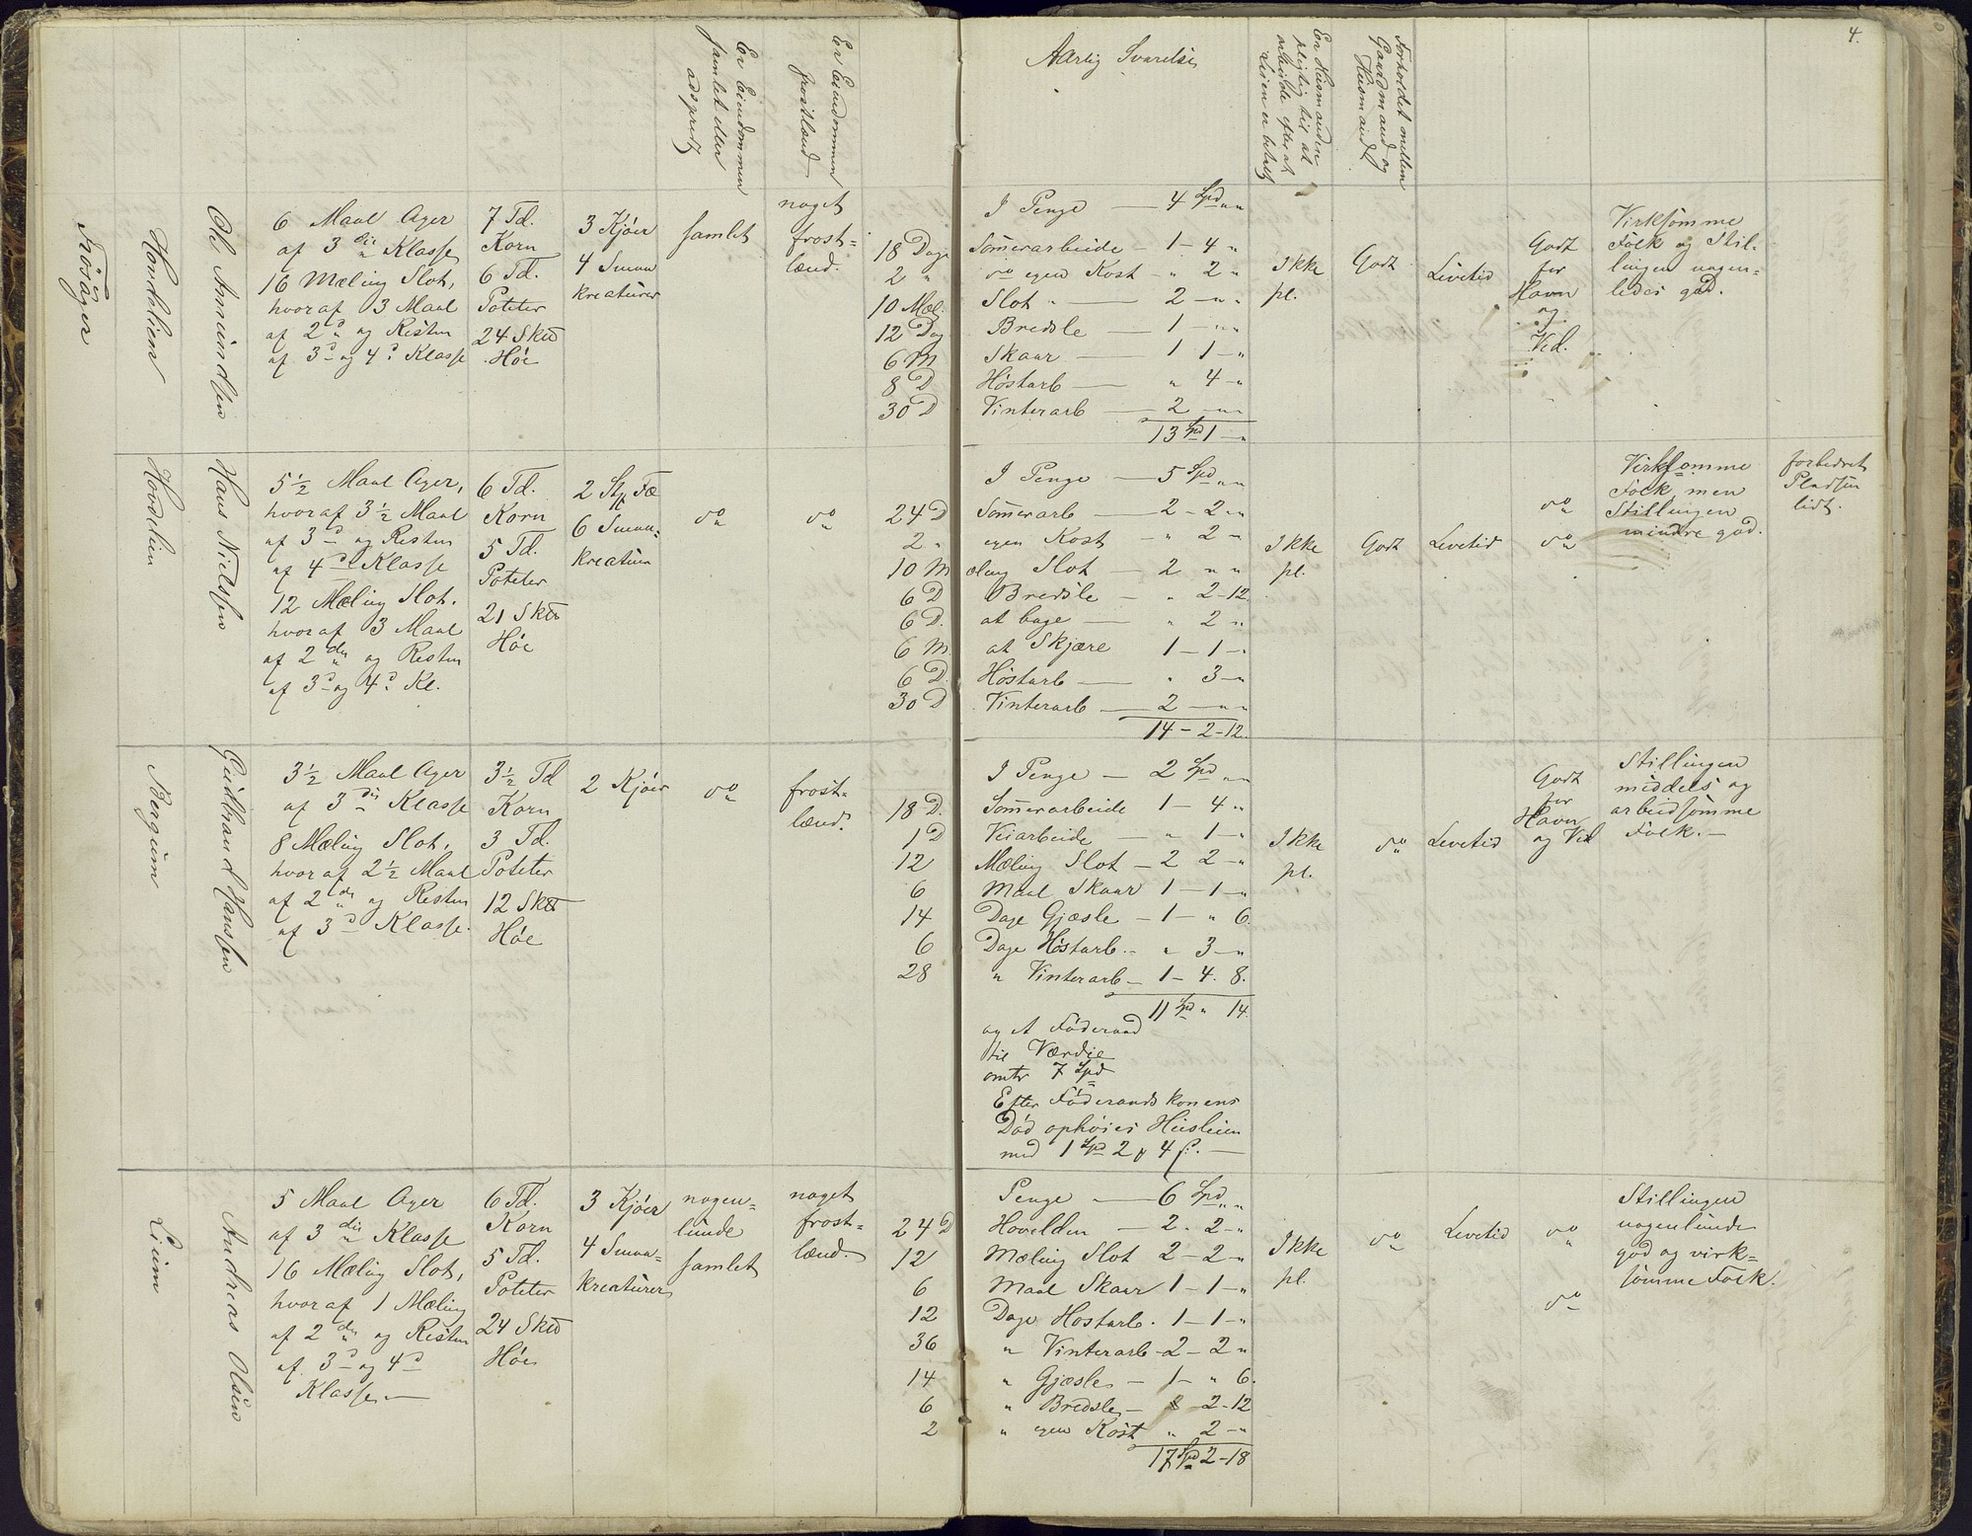 4.
Er Eiendommen
samlet eller
adspredt
Er Eiendommen
frostlænd
Aarlig Svarelse
Er Husmanden
pligtig til at
arbeide efterat
Leien er betalt
Forholdet mellem
Gaardmand og
Husmand
Frösager
Ole Amundsen
6 Maal Ager
af 3die Klasse
16 Mæling Slot,
hvoraf 3 Maal
af 2d og Resten
af 3d og 4d Klasse
7 Td.
Korn
6 Td.
Poteter
24 Skd
Höe
3 Kjöer
4 Smaa
kreaturer
samlet
noget
frost=
lænd.
18 Dage
2 "
10 Mæl.
12 Dag
6 M
8 D
30 D
I Penge — 4 Spd " "
Somerarbeide — 1 — 4 "
do egen Kost — " 2 "
Slot " — 2 — " "
Bredsle — 1 — " "
Skaar — 1 1 — "
Höstarb — " 4 — "
Vinterarb — 2 — " "
13 Spd 1 — "
Ikke
pl.
Godt
Livetid
Godt
for
Havn
og
Ved.
Virksomme
Folk og Stil-
lingen nogen=
ledes god.
Hovdelien
Hans Nielssen
5 1/2 Maal Ager,
hvoraf 3 1/2 Maal
af 3d og Resten
af 4d Klasse
12 Mæling Slot.
hvoraf 3 Maal
af 2den og Resten
af 3d og 4d Kl.
6 Td.
Korn
5 Td.
Poteter
21 Skd
Höe
2 Stk Fæ
6 Smaa=
kreaturer
do
do
24 D
2 "
10 M
6 D
6 D.
6 M
6 D
30 D
I Penge — 5 Spd " "
Somerarb — 2 — 2 — "
egen Kost — " 2 — "
æling Slot — 2 " "
Bredsle — " 2 - 12.
at bage — " 2 "
at Skjære 1 — 1 — "
Höstarb — " 3 — "
Vinterarb — 2 — " "
14 — 2 - 12.
Ikke
pl.
Godt
Levetid
do
do
Virksomme
Folk, men
Stillingen
mindre god.
forbedret
Pladsen
lidt.
Bergum
Gudbrand Hanssen
3 1/2 Maal Ager
af 3die Klasse
8 Mæling Slot,
hvoraf 2 1/2 Maal
af 2den og Resten
af 3d Klasse.
3 1/2 Td
Korn
3 Td.
Poteter
12 Skd
Höe
2 Kjöer
do
frost=
lænd.
18 D.
1 D
12
6
14
6
28
I Penge — 2 Spd " "
Somerarbeide 1 — 4 "
Veiarbeide — " 1 — "
Mæling Slot — 2 2 — "
Maal Skaar 1 — 1 — "
Dage Gjæsle — 1 — " 6.
Dage Höstarb. — " 3 — "
" Vinterarb — 1 — 4. 8.
11 Spd " 14.
og et Föderaad
til Værdie
omtr 7 Spd
Efter Föderaadskonens
Död ophöies Husleien
med 1 Spd 2 # 4 s. —
Ikke
pl.
do
Levetid
Godt
for
Havn
og Ved
Stillingen
middels og
arbeidsomme
Folk. —
Lium
Andreas Olsen
5 Maal Ager
af 3die Klasse
16 Mæling Slot,
hvoraf 1 Mæling
af 2den og Resten
af 3d og 4d
Klasse. —
6 Td.
Korn
5 Td.
Poteter
24 Skd
Höe
3 Kjöer
4 Smaa=
kreaturer
nogen=
lunde
samlet
noget
frost=
lænd.
24 D
12
6
12
36
14
6
2
Penge — 6 Spd " "
Hovelden — 2. 2 — "
Mæling Slot 2 — 2 — "
Maal Skaar 1 — 1 — "
Dage Höstarb. 1 — 1 — "
" Vinterarb — 2 — 2 "
" Gjæsle — 1 — " 6.
" Bredsle — 2 - 12
" egen Kost " 2 — "
17 Spd 2 - 18
Ikke
pl.
do
Levetid
do
do
Stillingen
nogenlunde
god og virk=
somme Folk.